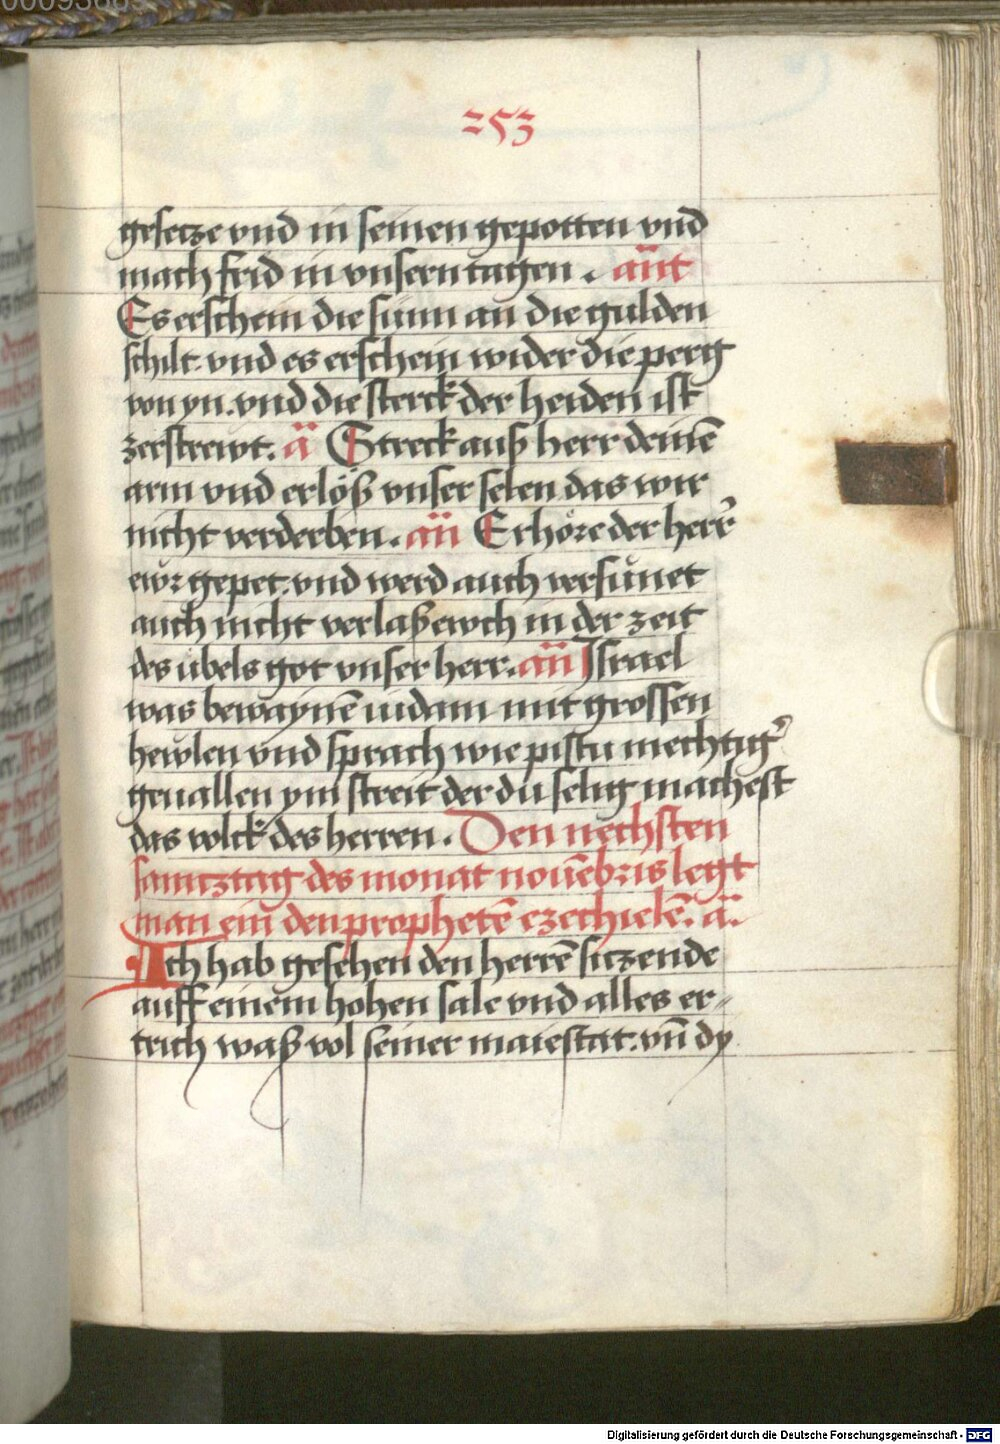 253
gesecze vnd in seinen gepotten vnd
mach frid in vnsern tagen. an̄t
Es erschein die sunn an die gulden
schilt. vnd es erschein wider die perg
von yn. vnd die sterck der heiden ist
zerstrewt. ā Streck auß herr deinē
arm vnd erlöß vnser selen das wir
nicht verderben. an̄ Erhöre der herr
ewr gepet. vnd werd auch versůnet
auch nicht verlaß ewch in der zeit
des übels got vnser herr. an̄ Israel
was bewaynē iudam mit grossen
hewlen vnd sprach wie pistu mechtig̾
geuallen ym streit der du selig machest
das volck des herren. Den nechsten
samcztag des monat nouēbris legt
man ein den prophetē ezechielē. ā.
Ich hab gesehen den herrē siczende
auff einem hohen sale vnd alles er-
trich waß vol seiner maiestat. vn̄ dy
Digitalisierung gefördert durch die Deutsche Forschungsgemeinschaft - DFG